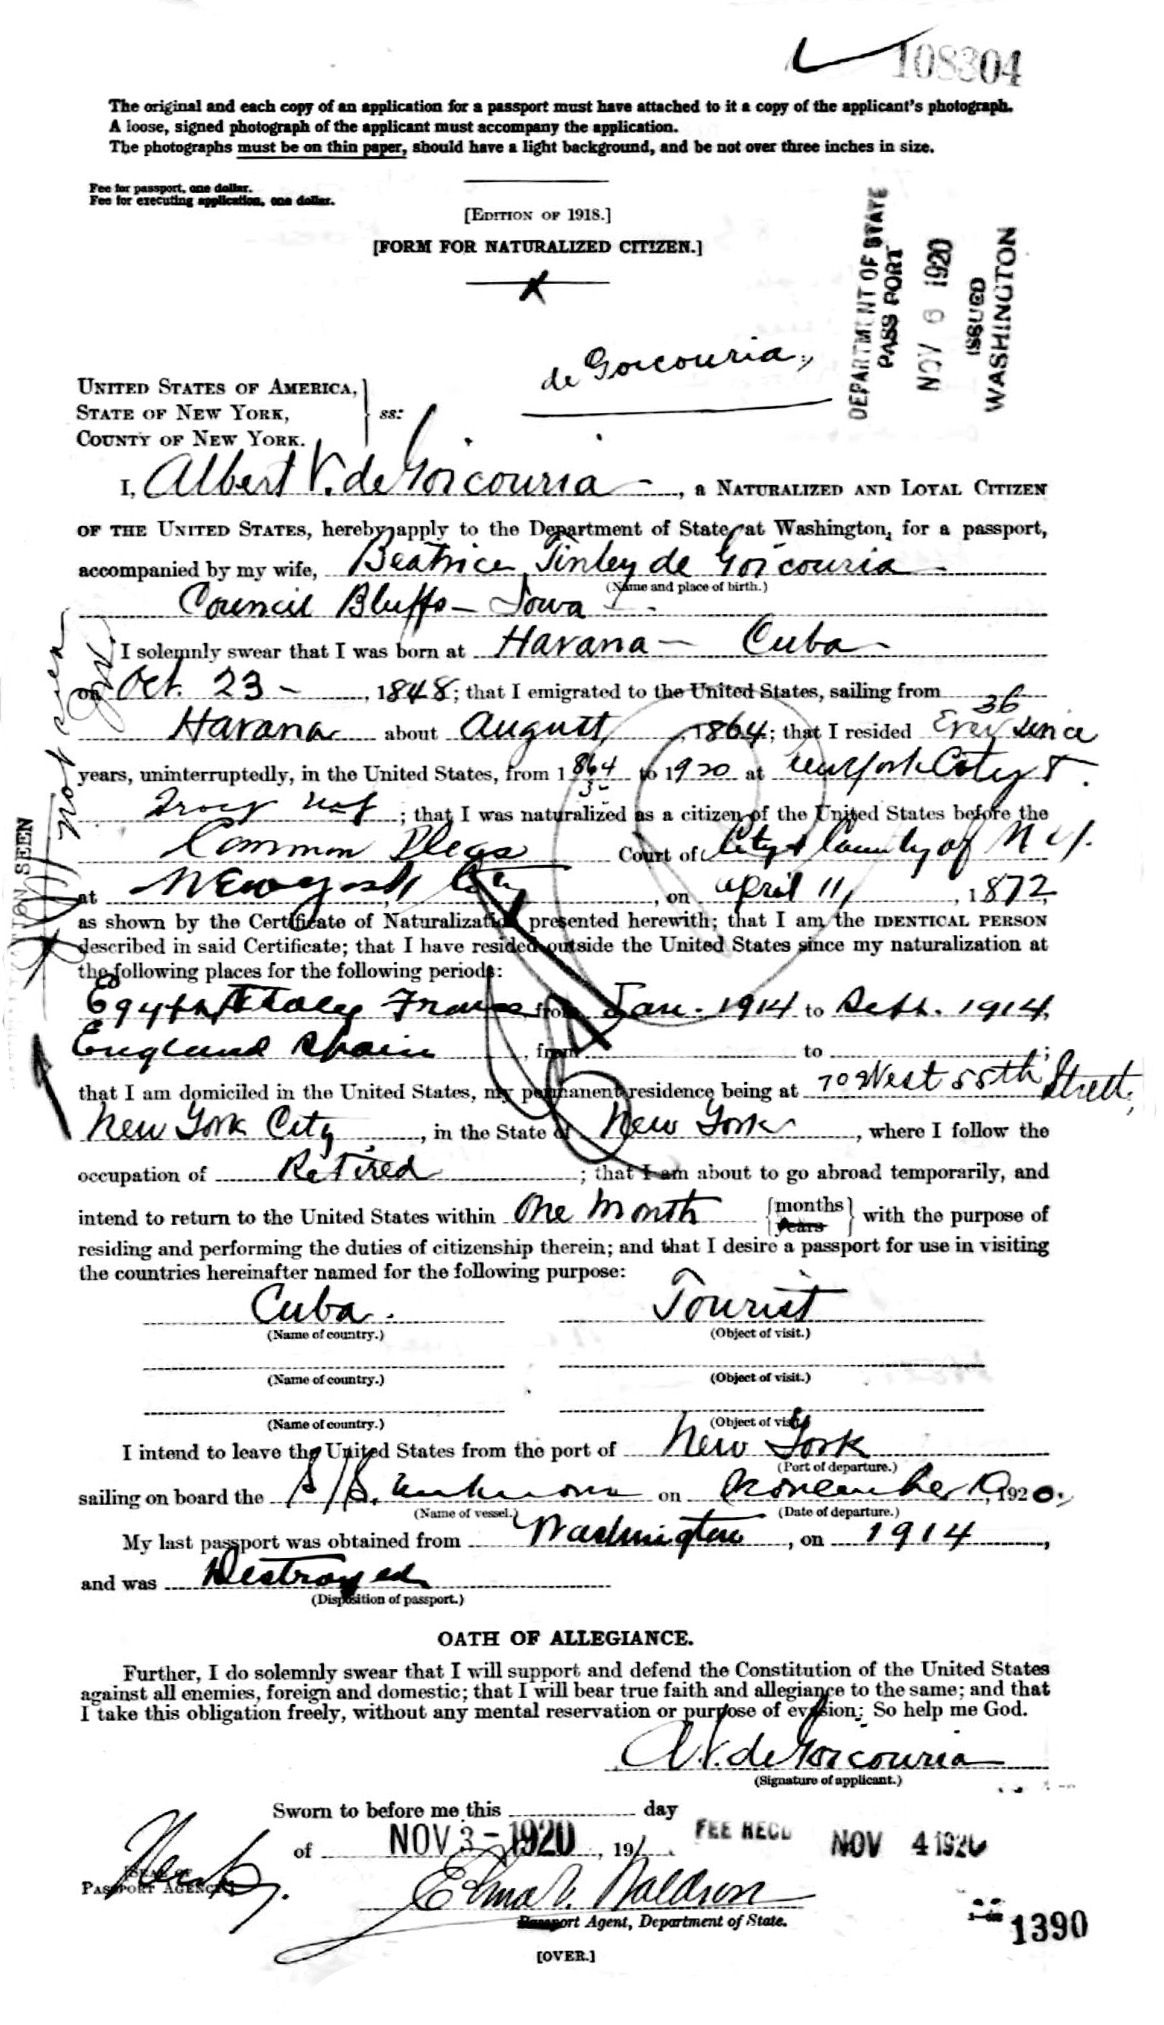 108304
The original and each copy of an application for a passport must have attached to it a copy of the applicant's photograph.
A loose, signed photograph of the applicant must accompany the application.
The photographs must be on thin paper, should have a light background, and be not over three inches in size.
Fee for passport, one dollar.
Fee for executing application, one dollar.
[EDITION OF 1918.]
[FORM FOR NATURALIZED CITIZEN.]
DEPARTMENT OF STATE
PASSPORT
NOV 6 1920
ISSUED
WASHINGTON
de Goicouria,
UNITED STATES OF AMERICA,
STATE OF NEW YORK,
COUNTY OF NEW YORK.
ss:
I, Albert V. de Goicouria, a NATURALIZED AND LOYAL CITIZEN
OF THE UNITED STATES, hereby apply to the Department of State at Washington, for a passport,
accompanied by my wife, Beatrice Tinley de Goicouria
(Name and place of birth.)
Council Bluffs - Iowa
I solemnly swear that I was born at Havana - Cuba -
on Oct. 23 -, 1848; that I emigrated to the United States, sailing from
Havana about August, 1864; that I resided Ever Since
36
years, uninterruptedly, in the United States, from 1864 to 1920 at New York City &
Troy; that I was naturalized as a citizen of the United States before the
Common Pleas Court of City & County of N Y.
at New York City, on April 11, 1872,
as shown by the Certificate of Naturalization presented herewith; that I am the IDENTICAL PERSON
described in said Certificate; that I have resided outside the United States since my naturalization at
the following places for the following periods:
Egypt Italy France, from Jan. 1914 to Sept. 1914,
England Spain, from to ;
that I am domiciled in the United States, my permanent residence being at 70 West 55th Street,
New York City, in the State of New York, where I follow the
occupation of Retired; that I am about to go abroad temporarily, and
intend to return to the United States within One Month {months years} with the purpose of
residing and performing the duties of citizenship therein; and that I desire a passport for use in visiting
the countries hereinafter named for the following purpose:
Cuba. Tourist
(Name of country.) (Object of visit.)
(Name of country.) (Object of visit.)
(Name of country.) (Object of visit.)
I intend to leave the United States from the port of New York
(Port of departure.)
sailing on board the S/S. unknown on November, 1920.
(Name of vessel.) (Date of departure.)
My last passport was obtained from Washington, on 1914,
and was Destroyed
(Disposition of passport.)
OATH OF ALLEGIANCE.
Further, I do solemnly swear that I will support and defend the Constitution of the United States
against all enemies, foreign and domestic; that I will bear true faith and allegiance to the same; and that
I take this obligation freely, without any mental reservation or purpose of evasion: So help me God.
A. V. de Goicouria
(Signature of applicant.)
Sworn to before me this day
of NOV 3 - 1920, 19
FEE RECD NOV 4 1920
PASSPORT AGENCY
Passport Agent, Department of State.
1390
[OVER.]